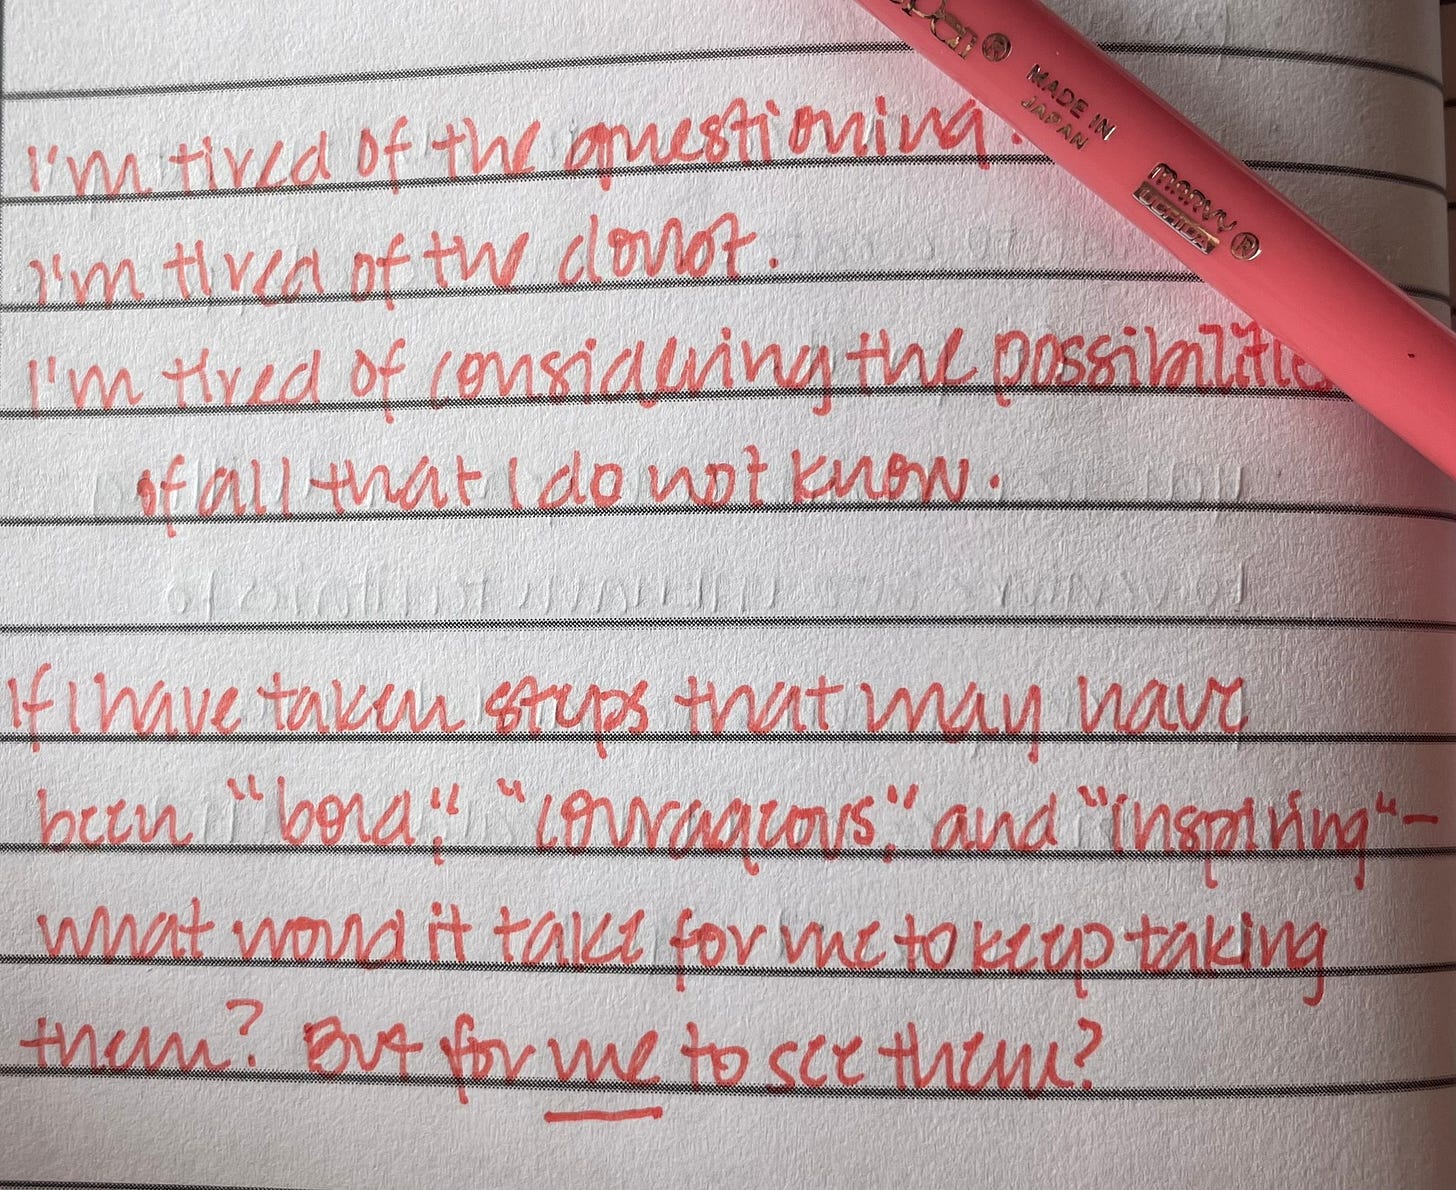 I'm tired of the questioning.
I'm tired of the doubt.
I'm tired of considering the possibilitie
of all that I do not know.
If I have taken steps that may have
been "bold," "courageous," and "inspiring"-
what would it take for me to keep taking
them? But for me to see them?
®
MADE IN
JAPAN
MARVY®
UCHIDA